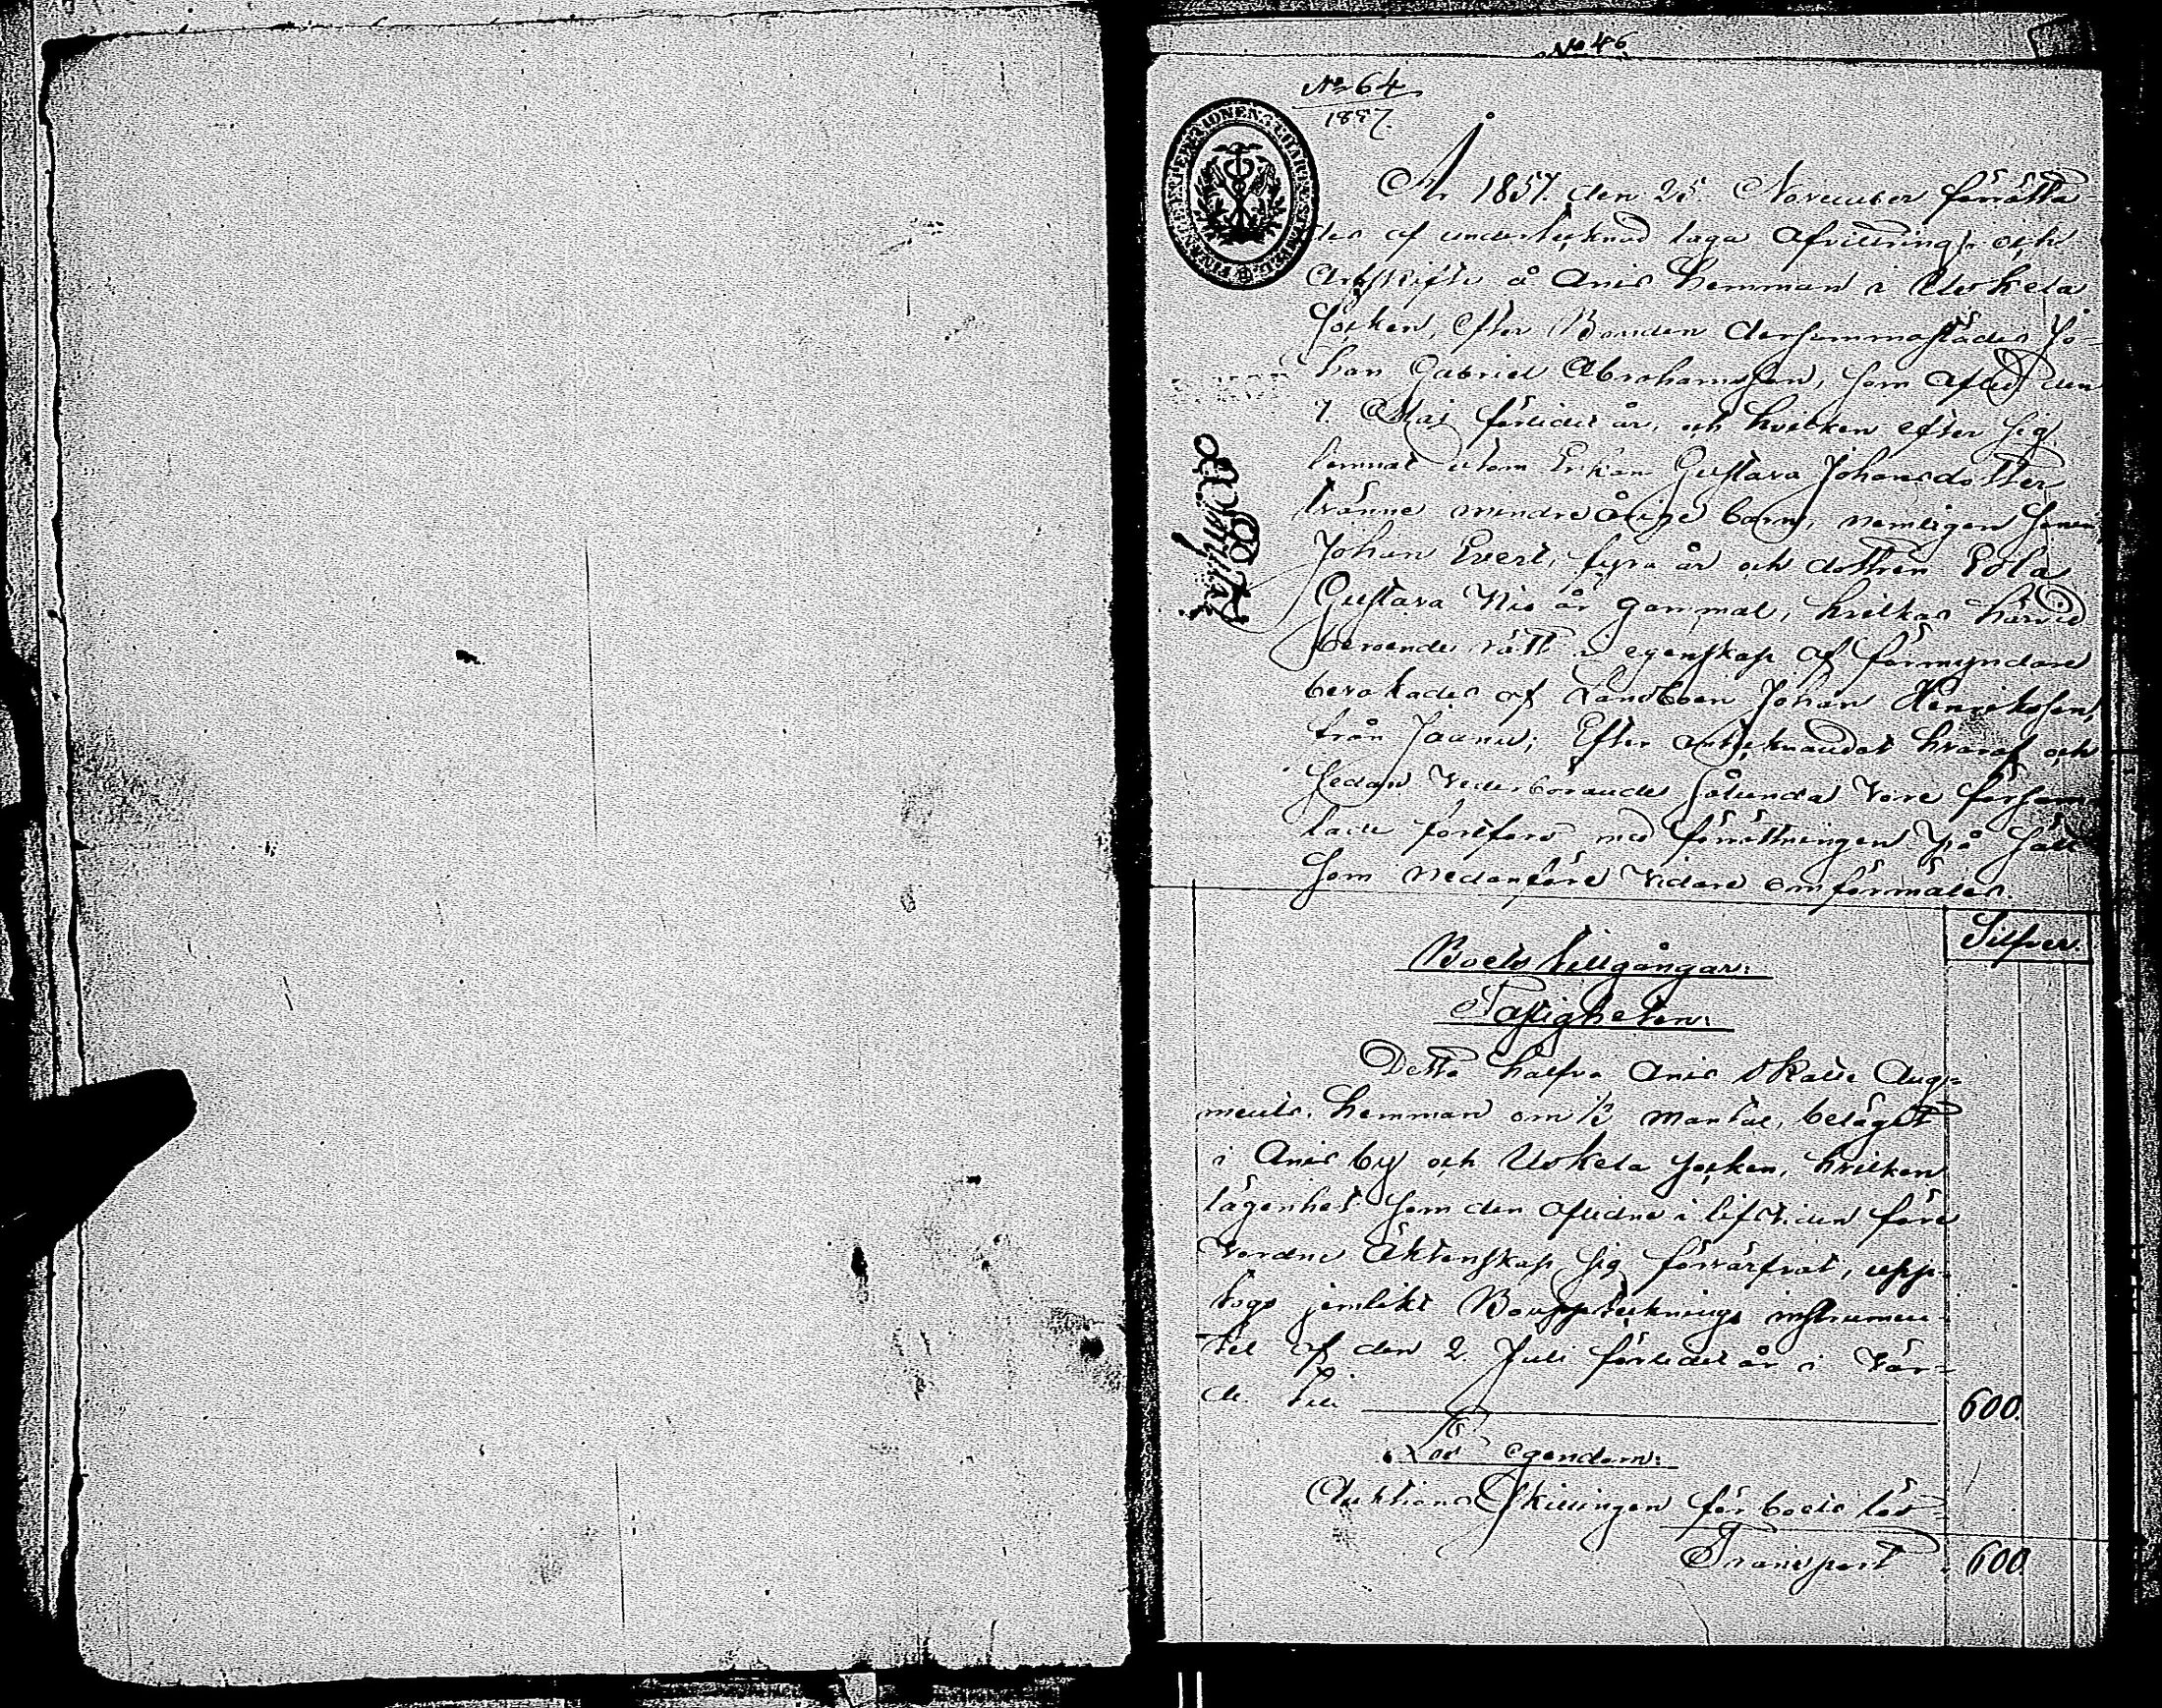 No 46.
No 64
1857.
År 1857. den 25. November förrätta-
des af undertecknad laga afvittring och
Arfskifte å Anis hemman i Uskela
Socken, efter Bonden dersammastädes Jo-
han Gabriel Abrahamsson, som afled den
7. Maj förlidet år, och hvilken efter sig
lemnat utom Enkan Gustava Johansdotter
tvänne minderårige barn, nemligen Sonen
Johan Evert, fyra år och dottren Eva
Gustava Nio år gammal, hvilkas härvid
beroende rätt i egenskap af förmyndare
bevakades af Landboen Johan Henriksson,
från Jaanu; Efter antecknandet hvaraf och
sedan Vederbörande sålunda voro försam-
lade fortfors med förrättningen på sätt
som nedanföre vidare omförmäles.
Silfver.
Boets tillgångar:
Fastigheten:
Detta halfva Anis Skatte Aug-
ments hemman om 1/2 mantal, beläget
i Anis by och Uskela Socken, hvilken
lägenhet som den aflidne i lifstiden före
vordne Äktenskap sig förvärfvat, upp-
togs jemlikt Bouppteckningsinstrumen-
tet af den 2. Juli förlidet år i vär-
de till 600.
Lös egendom:
Auktions Skillingen för boets lös-
Transport 600.